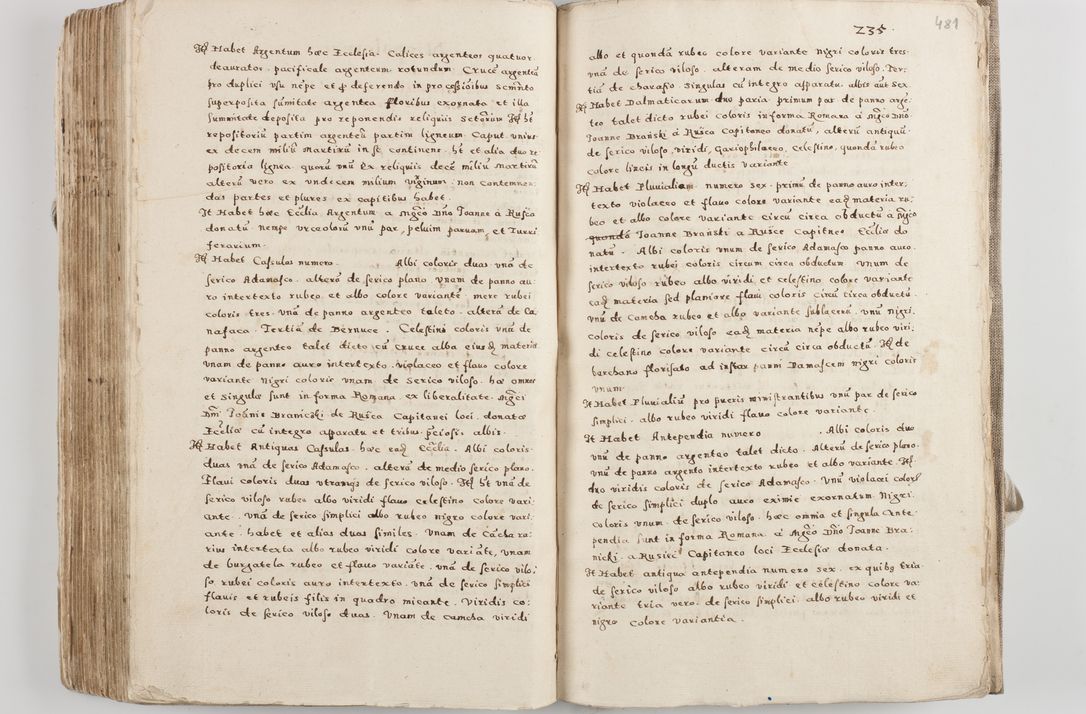 Itē Habet Argentum hæc Ecclesia. Calices argenteos quatuor
deauratos. pacificale argenteum rotundum. Crucē argenteā
pro duplici usu nēpe et ꝓ deferendo in processioībus
superposita sum̄itate argentea floribus exornata et illa
Summitate deposita pro reponendis reliquiis Itē ht
repositoriū partim argenteū partim ligneum. Caput unius
ex decem milib9 Martirū in se continens. ht et alia duo re:
positoria lignea quorū unū ex reliquiis decē miliū Martirū
alterū vero ex undecem milium viginum. non contemnen:
das partes et plures ex capitibus habet.
It Habet hæc Eccliā Argentum a Mgcō Dnō Joanne à Rusco
donatū nempe urceolorū unū par, pelvim parvam, et Turri
ferarium.
Itē Habet Casculas numero. Albi coloris duas unā de
serico Adamasco. alterā de serico plano. unam de panno au:
ro intertexto rubeo et albo colore variante. mere rubei
coloris tres. unā de panno argenteo taleto. alterā de Ca
nafaca. Tertiā de Bernuce. Celestino coloris unā de
panno argenteo talet dicto cū cruce alba eiusdē materiæ
unam de panno auro intertexto. violaceo et flavo colore
variante. Nigri coloris unam de serico viloso. hæ omnes
et singulæ sunt in forma Romana ex liberalitate. Mgcī
Dnī Joānis Braniczki de Rusca Capitanei loci. donatæ
Eccliæ cū integro apparatu et tribus albis.
Itē Habet Antiquas Casulas. hæc eadē Ecclia. Albi coloris.
duas unā de serico Adamasco. alterā de medio serico plano.
Flavi coloris duas utramqs de serico viloso. Itē ht unā de
serico viloso rubeo albo viridi flavo celestino colore vari:
ante. unā de serico simplici albo rubeo nigro colore vari:
ante. habet et alias duas similes. unam de
rius intertexta albo rubeo viridi colore variāte, unam
de burgatela rubeo et flavo variāte. unā de serico vilo:
so. rubei coloris auro intertexto. unā de serico simplici
flavis et rubeis filis in quadro micante. Viridis co:
loris de serico viloso duas. unam de camcha viridi
235. 481
albo et quondā rubeo colore variante nigri coloris tres.
unā de serico viloso. alteram de medio serico viloso. Ter:
tiā de singulas cū integro apparatu. albis aut sex
Itē Habet Dalmaticarum duo paria. primum par de panno argē:
teo talet dicto rubei coloris in forma Romana à Mgcō Dnō
Joanne Brański à Rusca Capitaneo donatū, alterū antiquū.
de serico viloso, viridi, gariophilaceo, celestino, quondā rubeo
colore lineis in longū ductis variante
Itē Habet Pluvialium numero sex. primū de panno auro inter:
texto violaceo et flavo colore variante eadē materia ru:
beo et albo colore variante circū circa obductū à Mgcō
quondā Joanne Brański à Rusce Capitaneo Eccliæ do
natū. Albi coloris unum de serico Adamasco panno auro
intertexto rubei coloris circum circa obductum unum de
serico viloso rubeo albo viridi, et celestino colore variante
eadē materia sed planiore flavi coloris circū circa obductū.
unū de camcha rubeo et albo variante sublacerū. unū nigri.
coloris de serico viloso eadē materia nēpe albo rubeo viri:
di celestino colore variante circū circa obductū. Itē de
barchano florisato ad instar panni Damasceni nigri coloris
unum.
It Habet Pluvialiū pro pueris ministrantibus unū par de serico
simplici. albo rubeo viridi flavo colore variante.
It Habet Antependia numero Albi coloris duo
unū de panno argenteo talet dicto. Alterū de serico plano.
unū de panno argento intertexto rubeo et albo variante. Itē
duo viridis coloris de serico Adamasco. unū violacei coloris
de serico simplici duplo auro eximie exornatum. Nigri
coloris unum de serico viloso. hæc omnia et singula Ante
pendia sunt in forma Romana. à Mgcō Dnō Joanne Bra:
nicki. a Capitaneo loci Ecclesiæ donata.
It Habet antiqua antependia numero sex. ex quibs tria
de serico viloso albo rubeo viridi et celestino colore va:
riante tria vero. de serico simplici. albo rubeo viridi et
nigro colore variantia.